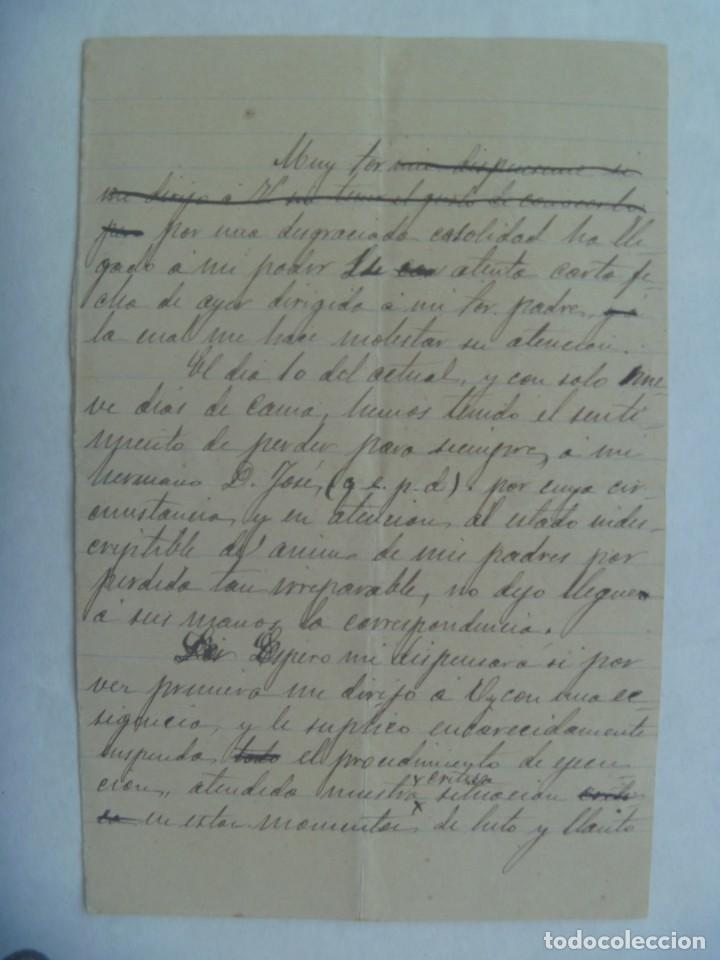 Muy Sor mio dispenseme si
me dirijo á V sin tener el gusto de conocerle
pero por una desgraciada casolidad ha lle-
gado á mi poder su atenta carta fe-
cha de ayer dirigida á mi Sor. padre,
la cual me hace molestar su atencion.
El dia 10 del actual, y con solo nue-
ve dias de cama, hemos tenido el senti-
miento de perder para siempre, á mi
hermano D. José, (q. e. p. d). por cuya cir-
cunstancia, y en atencion, al estado indes-
criptible del animo de mis padres por
perdida tan irreparable, no dejo lleguen
á sus manos la correspondencia.
Espero mi dispensará si por
vez primera me dirijo á V, con una ec-
sigencia, y le suplico encarecidamente
suspenda, todo el procedimiento de ejecu-
cion, atendida nuestra critica situacion criti-
ca en estos momentos de luto y llanto
todocoleccion
todocoleccion.net